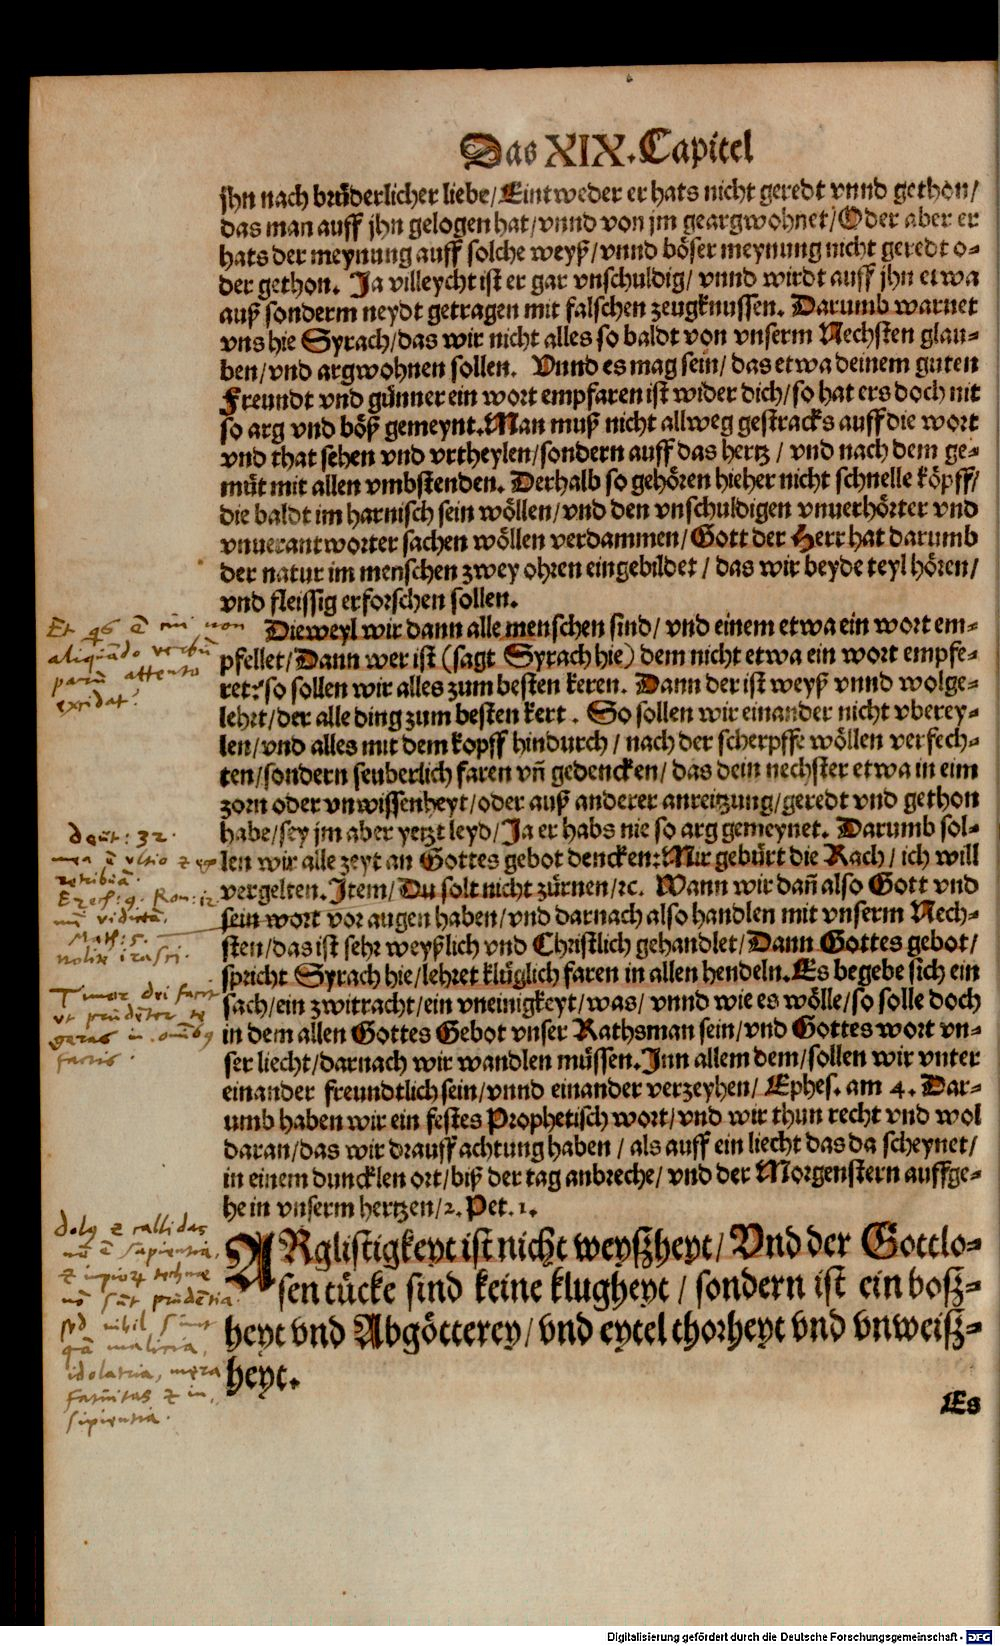 Das XIX. Capitel
jhn nach brüderlicher liebe/ Eintweder er hats nicht geredt vnnd gethon/
das man auff jhn gelogen hat/ vnnd von jm geargwohnet/ Oder aber er
hats der meynung auff solche weyß/ vnnd böser meynung nicht geredt o-
der gethon. Ja villeycht ist er gar vnschuldig/ vnnd wirdt auff jhn etwa
auß sonderm neydt getragen mit falschen zeugknussen. Darumb warnet
vns hie Syrach/ das wir nicht alles so baldt von vnserm Nechsten glau-
ben/ vnd argwohnen sollen. Vnnd es mag sein/ das etwa deinem guten
Freundt vnd günner ein wort empfaren ist wider dich/ so hat ers doch nit
so arg vnd böß gemeynt. Man muß nicht allweg gestracks auff die wort
vnd that sehen vnd vrtheylen/ sondern auff das hertz / vnd nach dem ge-
müt mit allen vmbstenden. Derhalb so gehören hieher nicht schnelle köpff/
die baldt im harnisch sein wöllen/ vnd den vnschuldigen vnuerhörter vnd
vnuerantworter sachen wöllen verdammen/ Gott der Herr hat darumb
der natur im menschen zwey ohren eingebildet / das wir beyde teyl hören/
vnd fleissig erforschen sollen.
Et qs ē cui non
aliquādo verbū
parū attento
excidat?
Dieweyl wir dann alle menschen sind/ vnd einem etwa ein wort em-
pfellet/ Dann wer ist (sagt Syrach hie) dem nicht etwa ein wort empfe-
ret? so sollen wir alles zum besten keren. Dann der ist weyß vnnd wolge-
lehrt/ der alle ding zum besten kert. So sollen wir einander nicht vberey-
len/ vnd alles mit dem kopff hindurch / nach der scherpffe wöllen verfech-
ten/ sondern seuberlich faren vñ gedencken/ das dein nechster etwa in eim
zorn oder vnwissenheyt/ oder auß anderer anreitzung/ geredt vnd gethon
habe/ sey jm aber yetzt leyd/ Ja er habs nie so arg gemeynet. Darumb sol-
len wir alle zeyt an Gottes gebot dencken: Mir gebürt die Rach / ich will
vergelten. Item/ Du solt nicht zürnen/ ꝛc. Wann wir dañ also Gott vnd
sein wort vor augen haben/ vnd darnach also handlen mit vnserm Nech-
sten/ das ist sehr weyßlich vnd Christlich gehandlet/ Dann Gottes gebot/
spricht Syrach hie/ lehret klüglich faren in allen hendeln. Es begebe sich ein
sach/ ein zwitracht/ ein vneinigkeyt/ was/ vnnd wie es wölle/ so solle doch
in dem allen Gottes Gebot vnser Rathsman sein/ vnd Gottes wort vn-
ser liecht/ darnach wir wandlen müssen. Inn allem dem/ sollen wir vnter
einander freundtlich sein/ vnnd einander verzeyhen/ Ephes. am 4. Dar-
umb haben wir ein festes Prophetisch wort/ vnd wir thun recht vnd wol
daran/ das wir drauff achtung haben / als auff ein liecht das da scheynet/
in einem duncklen ort/ biß der tag anbreche/ vnd der Morgenstern auffge-
he in vnserm hertzen/ 2. Pet. 1.
deut: 32.
mea ē vltio et ego
retribuā.
Ezech: 9. Rom: 12
Math: 5.
nolite irasci.
Timor dei facit
vt prudēter te
geras in omībꝫ
factis.
ARglistigkeyt ist nicht weyßheyt/ Vnd der Gottlo-
sen tücke sind keine klugheyt / sondern ist ein boß-
heyt vnd Abgötterey/ vnd eytel thorheyt vnd vnweiß-
heyt.
dolꝰ et calliditas
nō ē sapientia,
et impioꝝ technae
nō sūt prudētia
sed nihil sunt
quā malicia,
idolatria, mera
fatuitas et in
sipientia.
Es
Digitalisierung gefördert durch die Deutsche Forschungsgemeinschaft - DFG